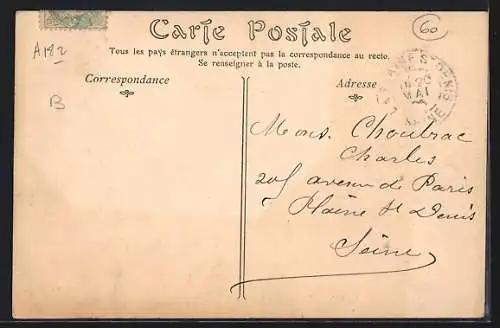 Carte Postale
Tous les pays étrangers n'acceptent pas la correspondance au recto.
Se renseigner à la poste.
Correspondance
Adresse
60
A182
B
MAI
SEINE
Mons. Choubrac
Charles
205 avenue de Paris
Plaine St Denis
Seine